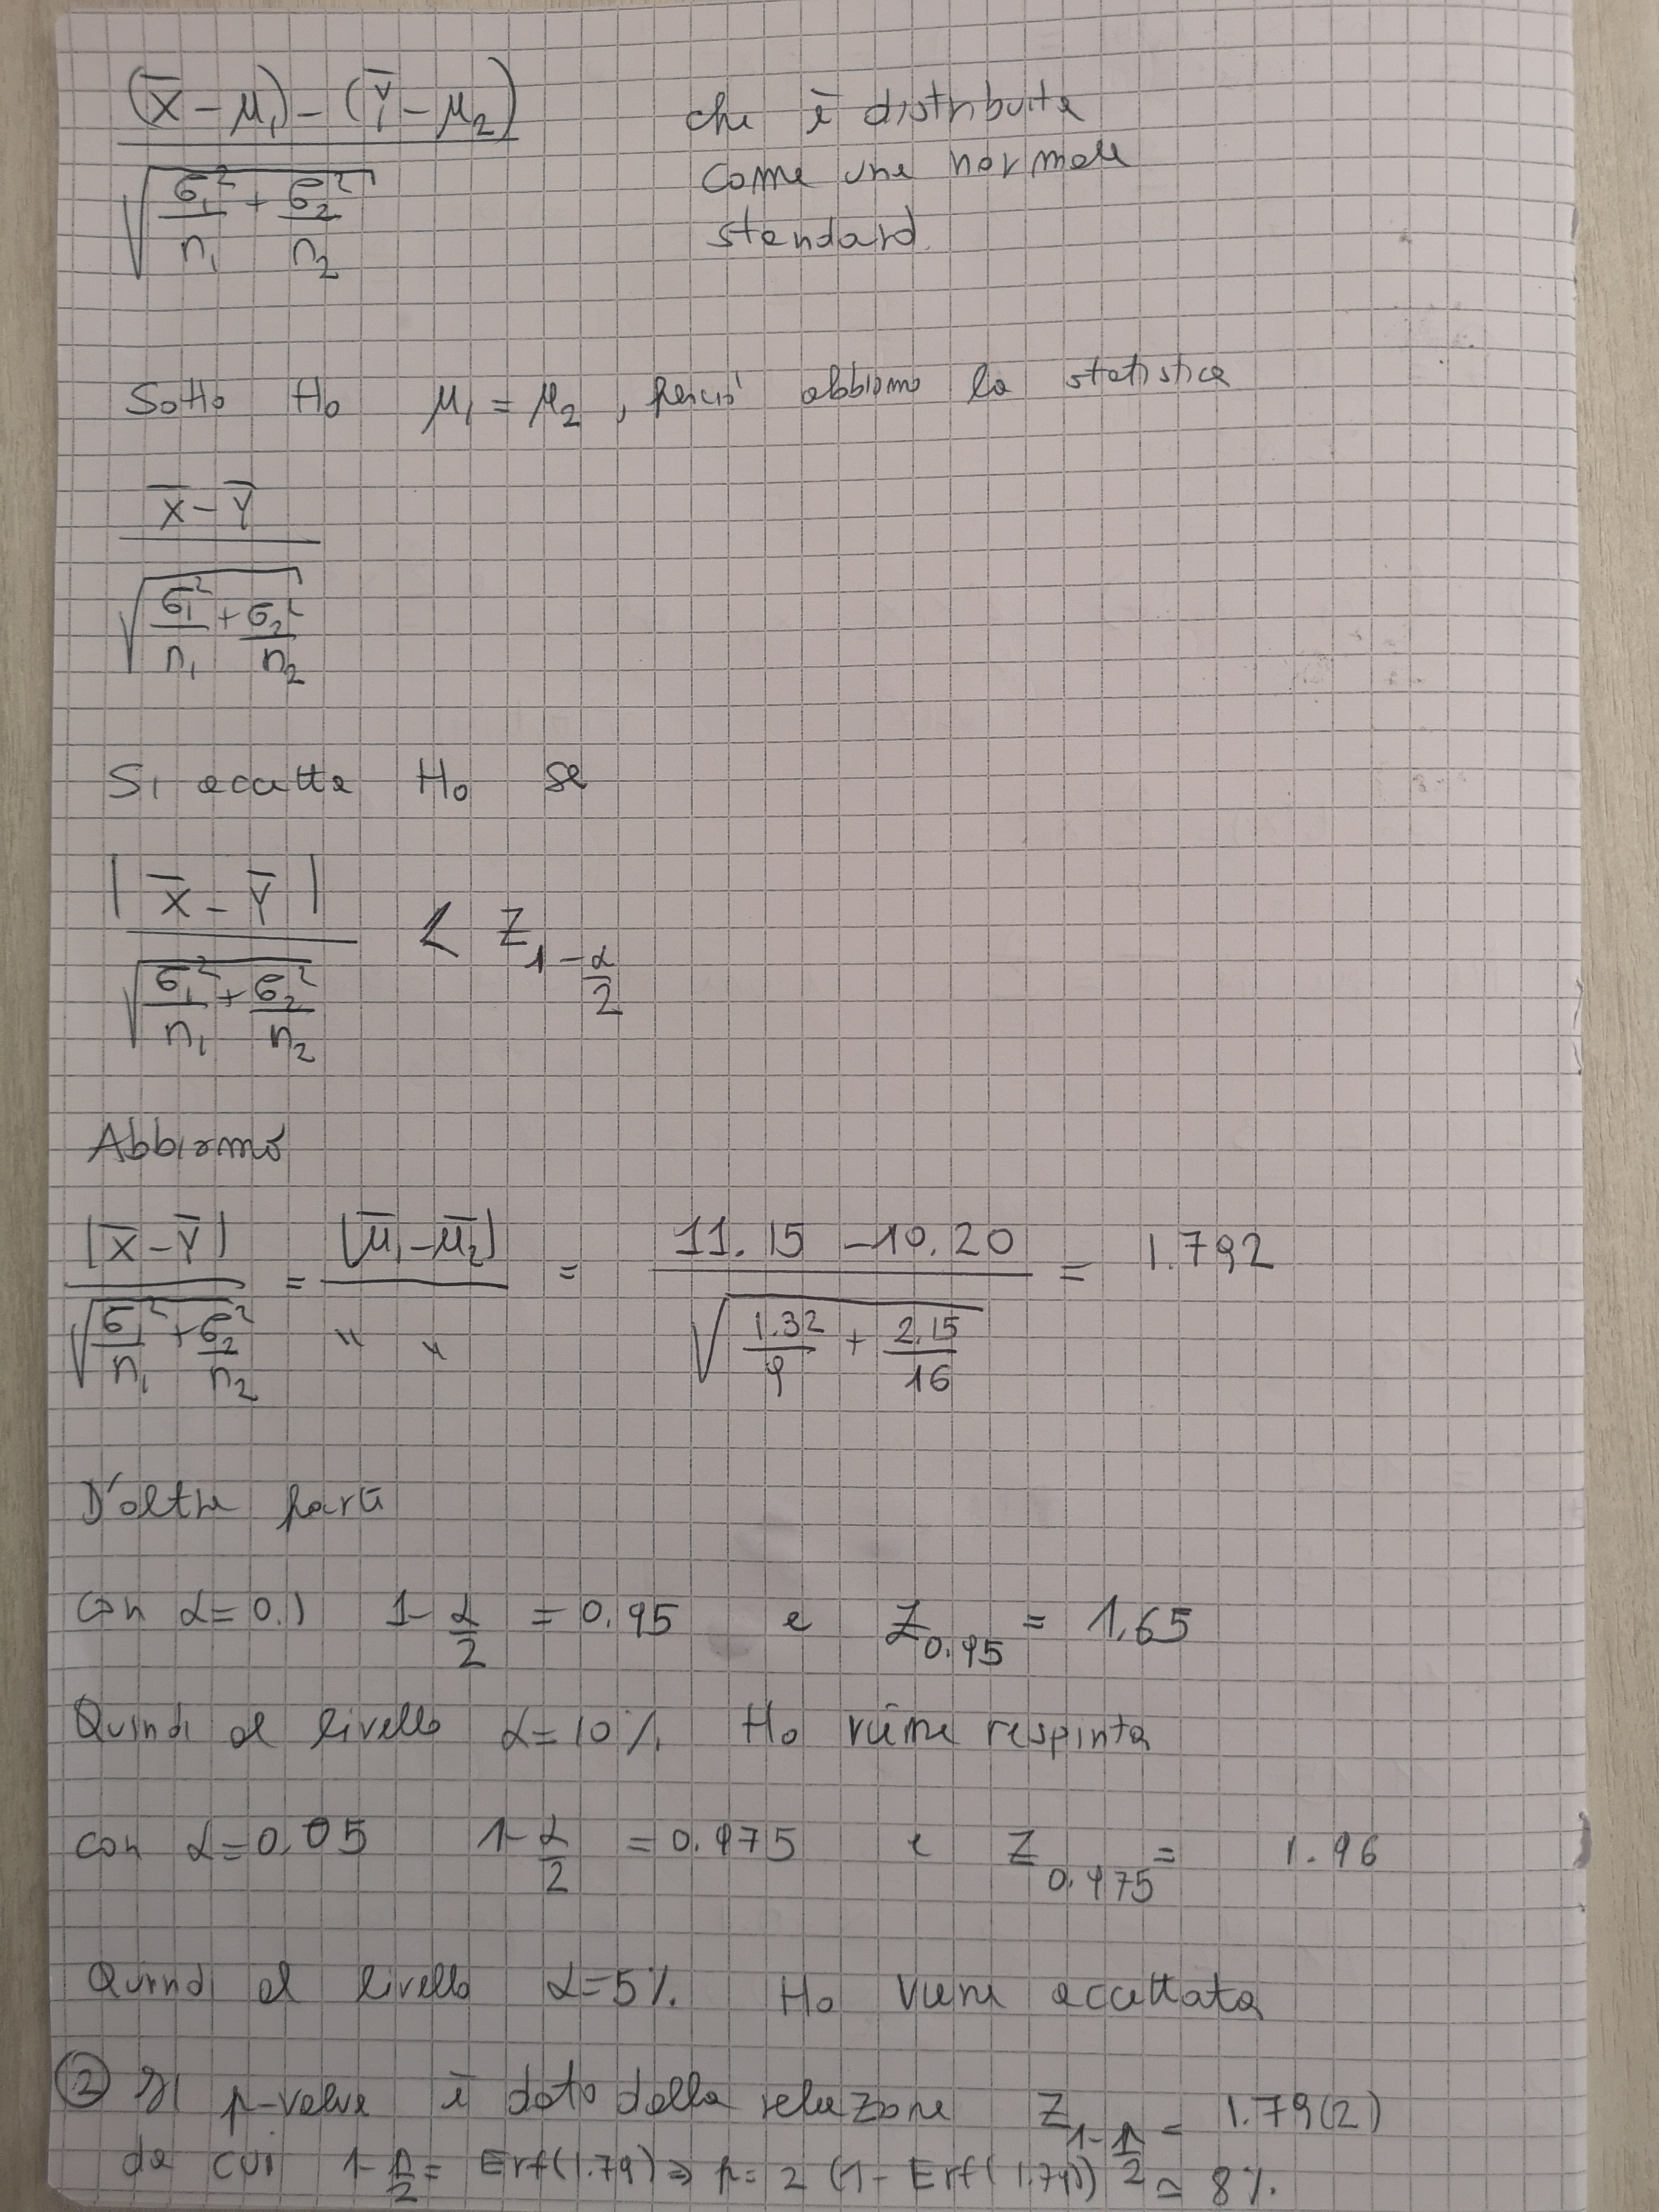 (X̄ - μ₁) - (Ȳ - μ₂) / √(σ₁²/n₁ + σ₂²/n₂) che è distribuita
come una normale
standard.
Sotto H₀ μ₁ = μ₂, perciò abbiamo la statistica
X̄ - Ȳ / √(σ₁²/n₁ + σ₂²/n₂)
Si accetta H₀ se
|X̄ - Ȳ| / √(σ₁²/n₁ + σ₂²/n₂) < Z_{1-α/2}
Abbiamo
|X̄ - Ȳ| / √(σ₁²/n₁ + σ₂²/n₂) = |μ̄₁ - μ̄₂| / " " = 11.15 - 10.20 / √(1.32/9 + 2.15/16) = 1.792
D'altra parte
Con α = 0.1 1 - α/2 = 0.95 e Z_{0.95} = 1.65
Quindi al livello α = 10% H₀ viene respinta
con α = 0.05 1 - α/2 = 0.975 e Z_{0.975} = 1.96
Quindi al livello α = 5% H₀ viene accettata
② Il p-value è dato dalla relazione Z_{1-p/2} = 1.79(2)
da cui 1 - p/2 = Erf(1.79) ⇒ p = 2 (1 - Erf(1.79)) ≃ 8%.